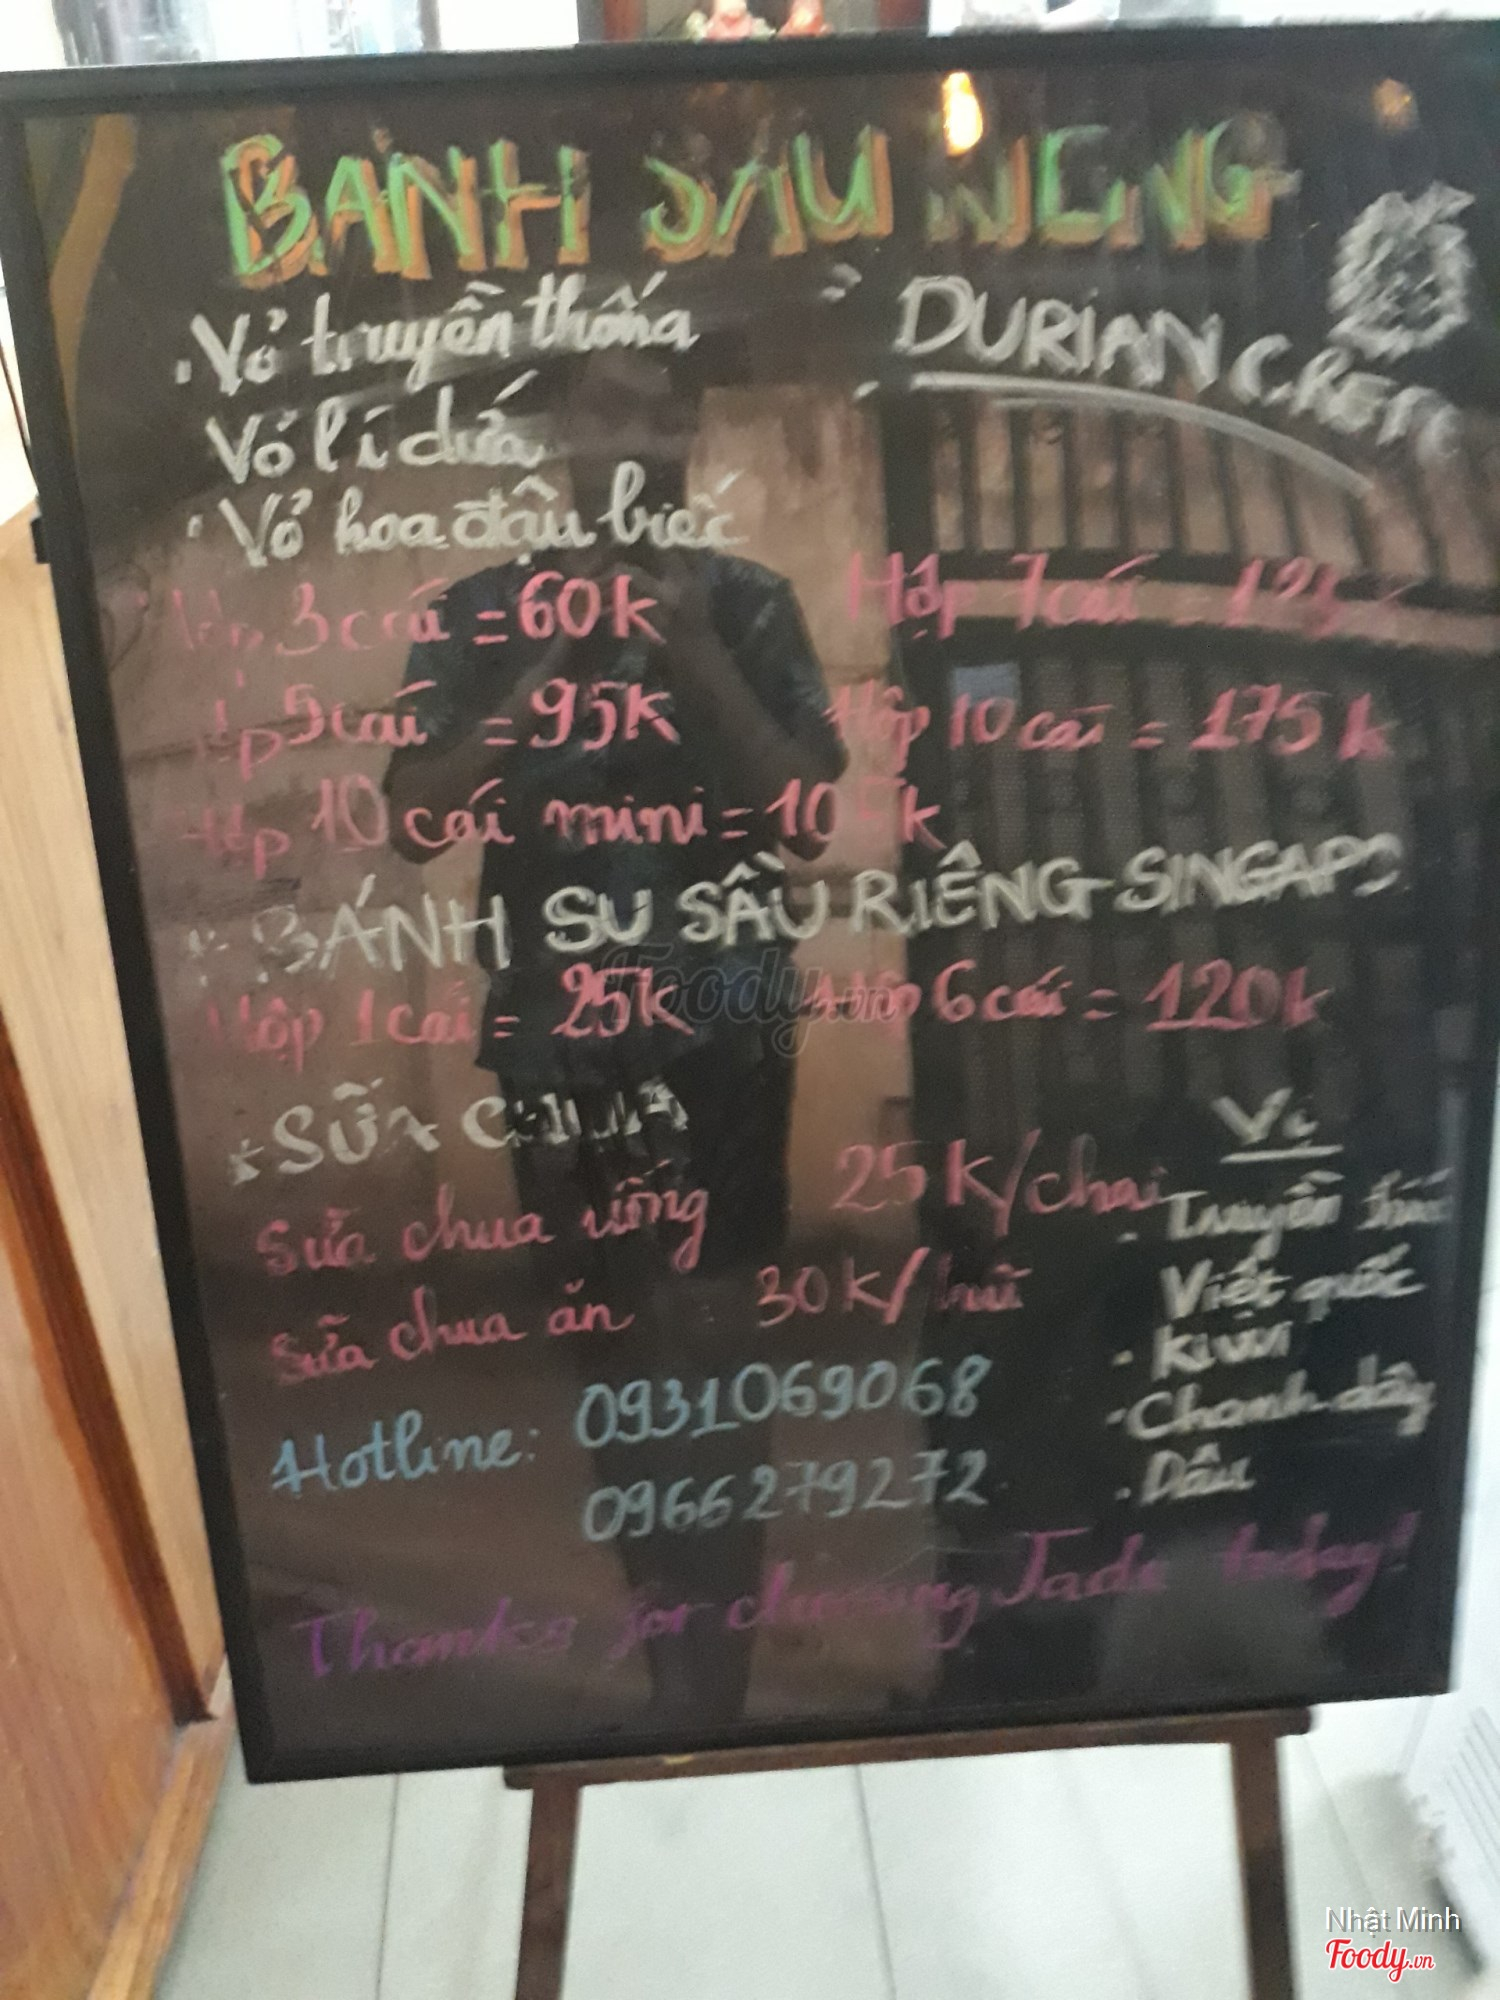 BÁNH SẦU RIÊNG
DURIAN CREAM
. Vỏ truyền thống
Vỏ lí dứa
. Vỏ hoa đậu biếc
Hộp 3 cái = 60k
Hộp 7 cái
Hộp 5 cái = 95k
Hộp 10 cái = 175k
Hộp 10 cái mini = 105k
BÁNH SU SẦU RIÊNG SINGAPO
Hộp 1 cái = 25k
Hộp 6 cái = 120k
* SỮA CHUA
Vị
Sữa chua uống 25k/chai
. Truyền thống
Việt quất
Sữa chua ăn : 30k/
. Kiwi
. Chanh dây
. Dâu
Hotline: 0931069068
0966279272
Thanks for choosing Jade today!
Foody.vn
Nhật Minh
Foody.vn